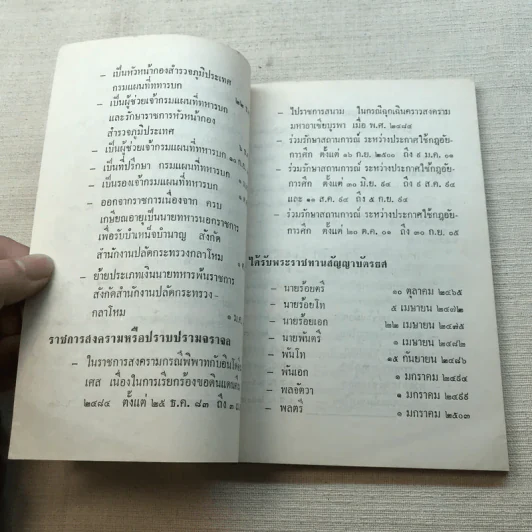 – เป็นหัวหน้ากองสำรวจภูมิประเทศ
กรมแผนที่ทหารบก
– เป็นผู้ช่วยเจ้ากรมแผนที่ทหารบก
และรักษาราชการหัวหน้ากอง
สำรวจภูมิประเทศ
– เป็นผู้ช่วยเจ้ากรมแผนที่ทหารบก
– เป็นที่ปรึกษา กรมแผนที่ทหารบก
– เป็นรองเจ้ากรมแผนที่ทหารบก
– ออกจากราชการเนื่องจาก ครบ
เกษียณอายุเป็นนายทหารนอกราชการ
เพื่อรับบำเหน็จบำนาญ สังกัด
สำนักงานปลัดกระทรวงกลาโหม
– ย้ายประเภทเป็นนายทหารพ้นราชการ
สังกัดสำนักงานปลัดกระทรวง-
กลาโหม
ราชการสงครามหรือปราบปรามจราจล
– ในราชการสงครามกรณีพิพาทกับอินโด
เศส เนื่องในการเรียกร้องขอดินแดน
๒๔๘๔ ตั้งแต่ ๒๕ ธ.ค. ๘๓ ถึง
– ไปราชการสนาม ในกรณีฉุกเฉินคราวสงคราม
มหาอาเซียบูรพา เมื่อ พ.ศ. ๒๔๘๔
– ร่วมรักษาสถานการณ์ ระหว่างประกาศใช้กฎอัย-
การศึก ตั้งแต่ ๑๖ ก.ย. ๒๕๐๐ ถึง ๙ ม.ค. ๐๑
– ร่วมรักษาสถานการณ์ ระหว่างประกาศใช้กฎอัย-
การศึก ตั้งแต่ ๓๐ มิ.ย. ๙๔ ถึง ๙ ส.ค. ๙๔
และ ๑๑ ส.ค. ๙๔ ถึง ๕ ก.ย. ๙๔
– ร่วมรักษาสถานการณ์ ระหว่างประกาศใช้กฎอัย-
การศึก ตั้งแต่ ๒๐ ต.ค. ๐๑ ถึง ๓๐ มิ.ย. ๐๕
ได้รับพระราชทานสัญญาบัตรยศ
– นายร้อยตรี ๑๐ ตุลาคม ๒๔๖๕
– นายร้อยโท ๕ เมษายน ๒๔๗๒
– นายร้อยเอก ๒๒ เมษายน ๒๔๗๕
– นายพันตรี ๑ เมษายน ๒๔๘๒
– พันโท ๑๕ กันยายน ๒๔๘๖
– พันเอก ๑ มกราคม ๒๔๙๔
– พลจัตวา ๑ มกราคม ๒๔๙๙
– พลตรี ๑ มกราคม ๒๕๐๓